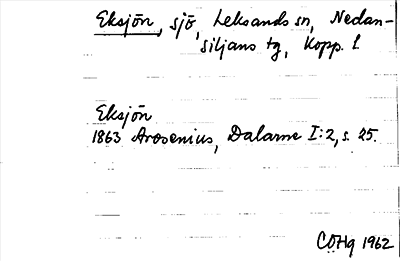 Eksjön, sjö, Leksands sn, Nedan-
siljans tg, Kopp. l.
Eksjön
1863 Arosenius, Dalarne I:2, s. 25.
COHg 1962